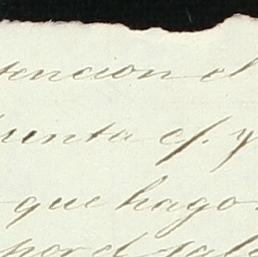 tencion el
uenta cf. y
que hago
por el sal